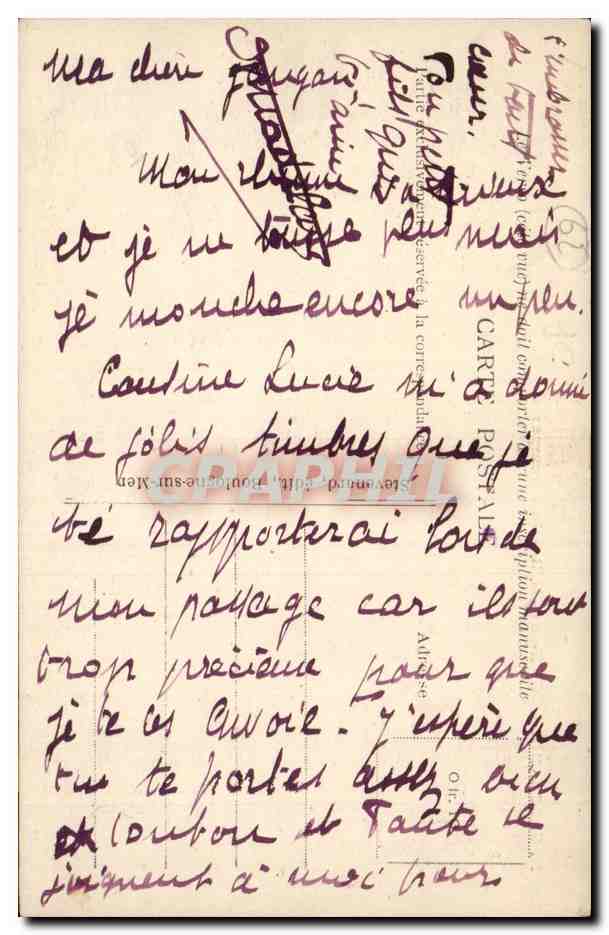 Ma chère
Mon rhume va mieux
et je ne tousse peu mais
je mouche encore un peu.
Cousine Lucie m'a donné
de jolis timbres que je
te rapporterai lors de
mon passage car ils sont
trop précieux pour que
je te les envoie. J'espère que
tu te portes assez bien
et Tonton et Tante se
joignent à moi pour
t'embrasser
de tout
cœur.
Ton petit
fils qui
t'aime
(62)
Le Verso (côté vue) ne doit comporter aucune inscription manuscrite
CARTE POSTALE
Partie exclusivement réservée à la correspondance
Adresse
Stevenard, édit., Boulogne-sur-Mer
CPAPHIL